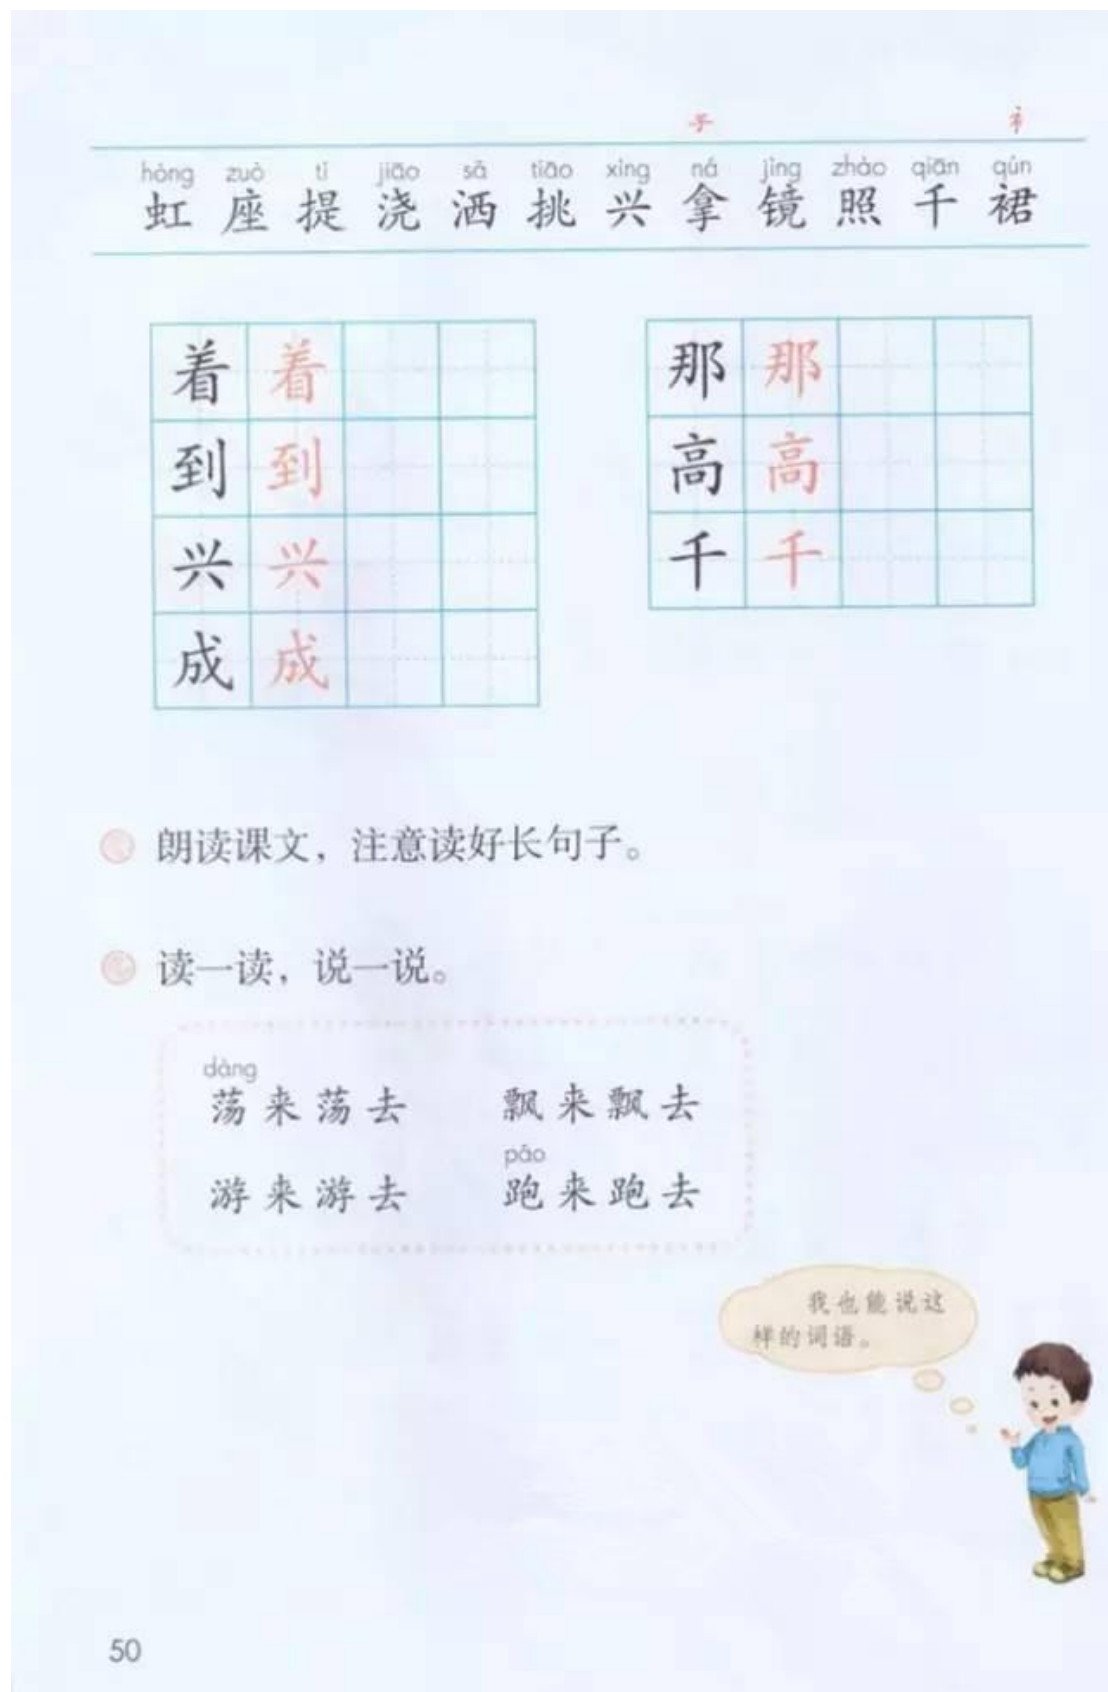 手 衤
hóng zuò tí jiāo sǎ tiāo xìng ná jìng zhào qiān qún
虹 座 提 浇 洒 挑 兴 拿 镜 照 千 裙
着 着 那 那
到 到 高 高
兴 兴 千 千
成 成
朗读课文，注意读好长句子。
读一读，说一说。
dàng
荡来荡去 飘来飘去
pǎo
游来游去 跑来跑去
我也能说这
样的词语。
50